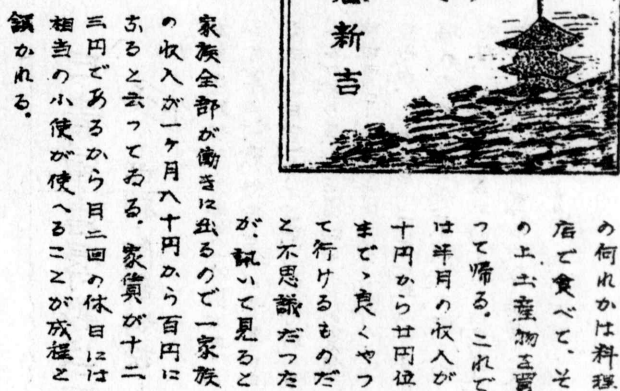 新吉
の何れかは料理
店で食べて、そ
の上土産物を買
って帰る。これで
は半月の収入が
十円から廿円位
まで、良くやつ
て行けるものだ
と不思議だった
が、訊いて見ると
家族全部が働きに出るので一家族
の収入が一ヶ月八十円から百円に
なると云ってゐる。家賃が十二
三円であるから月二回の休日には
相当の小使が使へることが成程と
頷かれる。